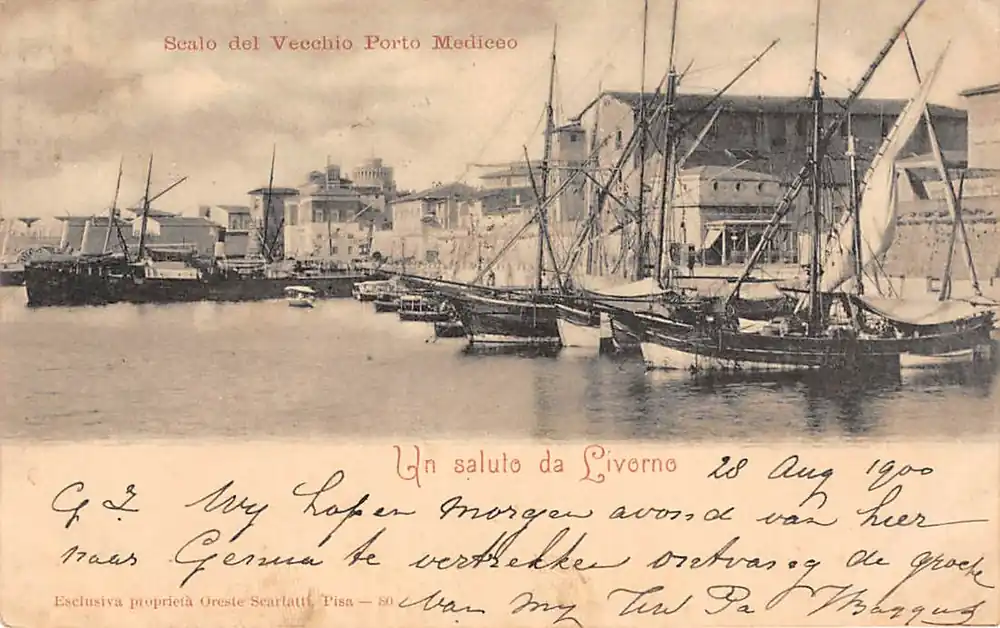 Scalo del Vecchio Porto Mediceo
Un saluto da Livorno
28 Aug 1900
Wy hopen morgen avond van hier
naar Genua te vertrekken ontvang de groete
Esclusiva proprietà Oreste Scarlatti, Pisa — 80
van my Uw Pa